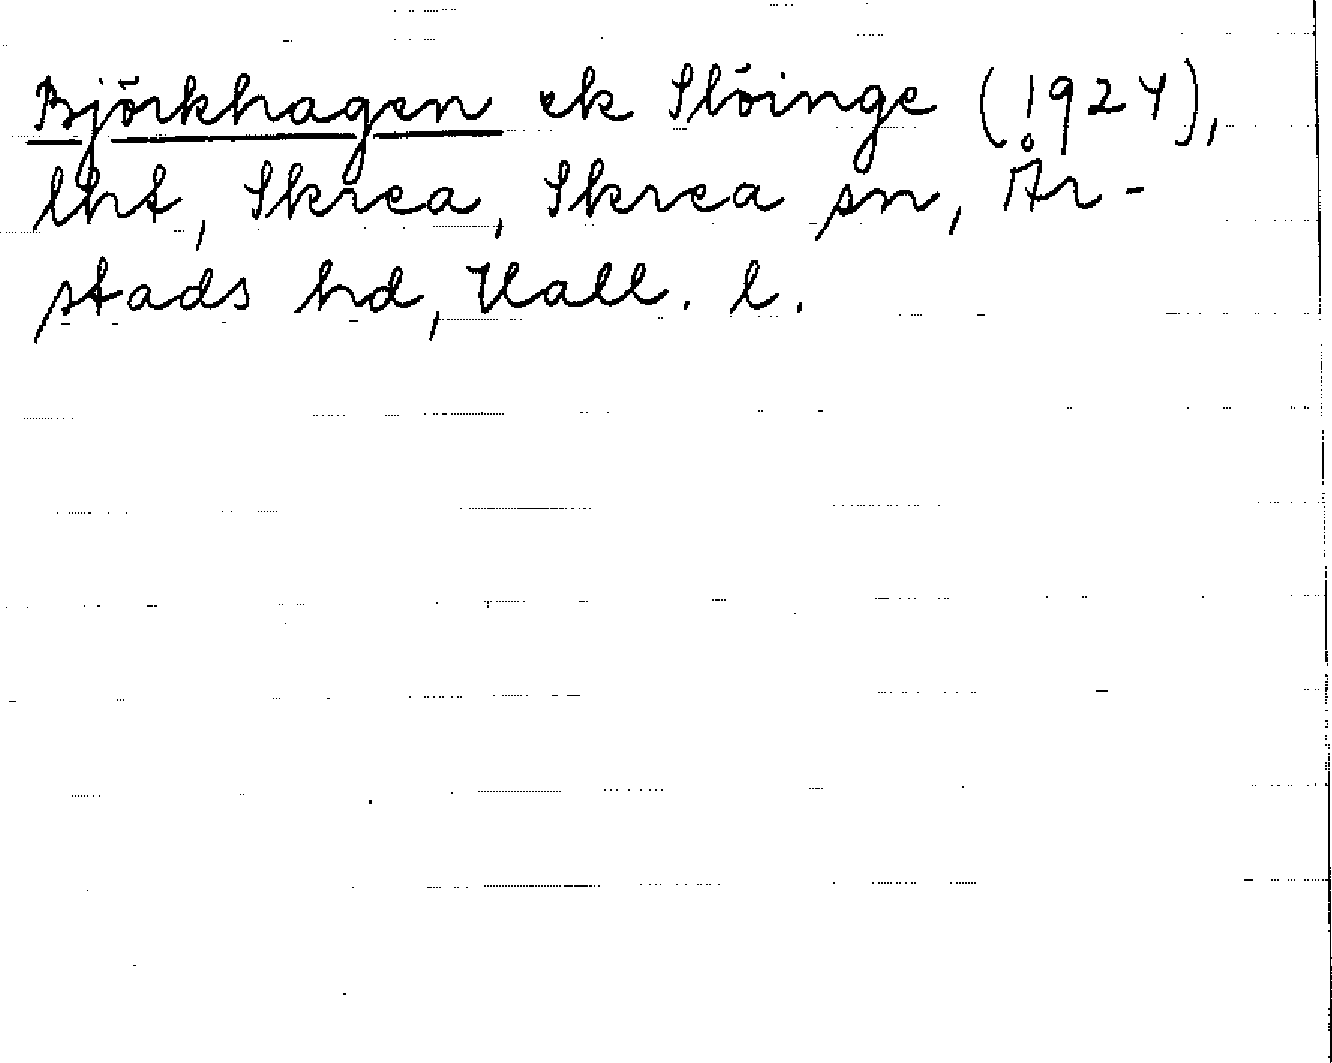 Björkhagen ek Slöinge (1924),
lht, Skrea, Skrea sn, År-
stads hd, Hall. l.